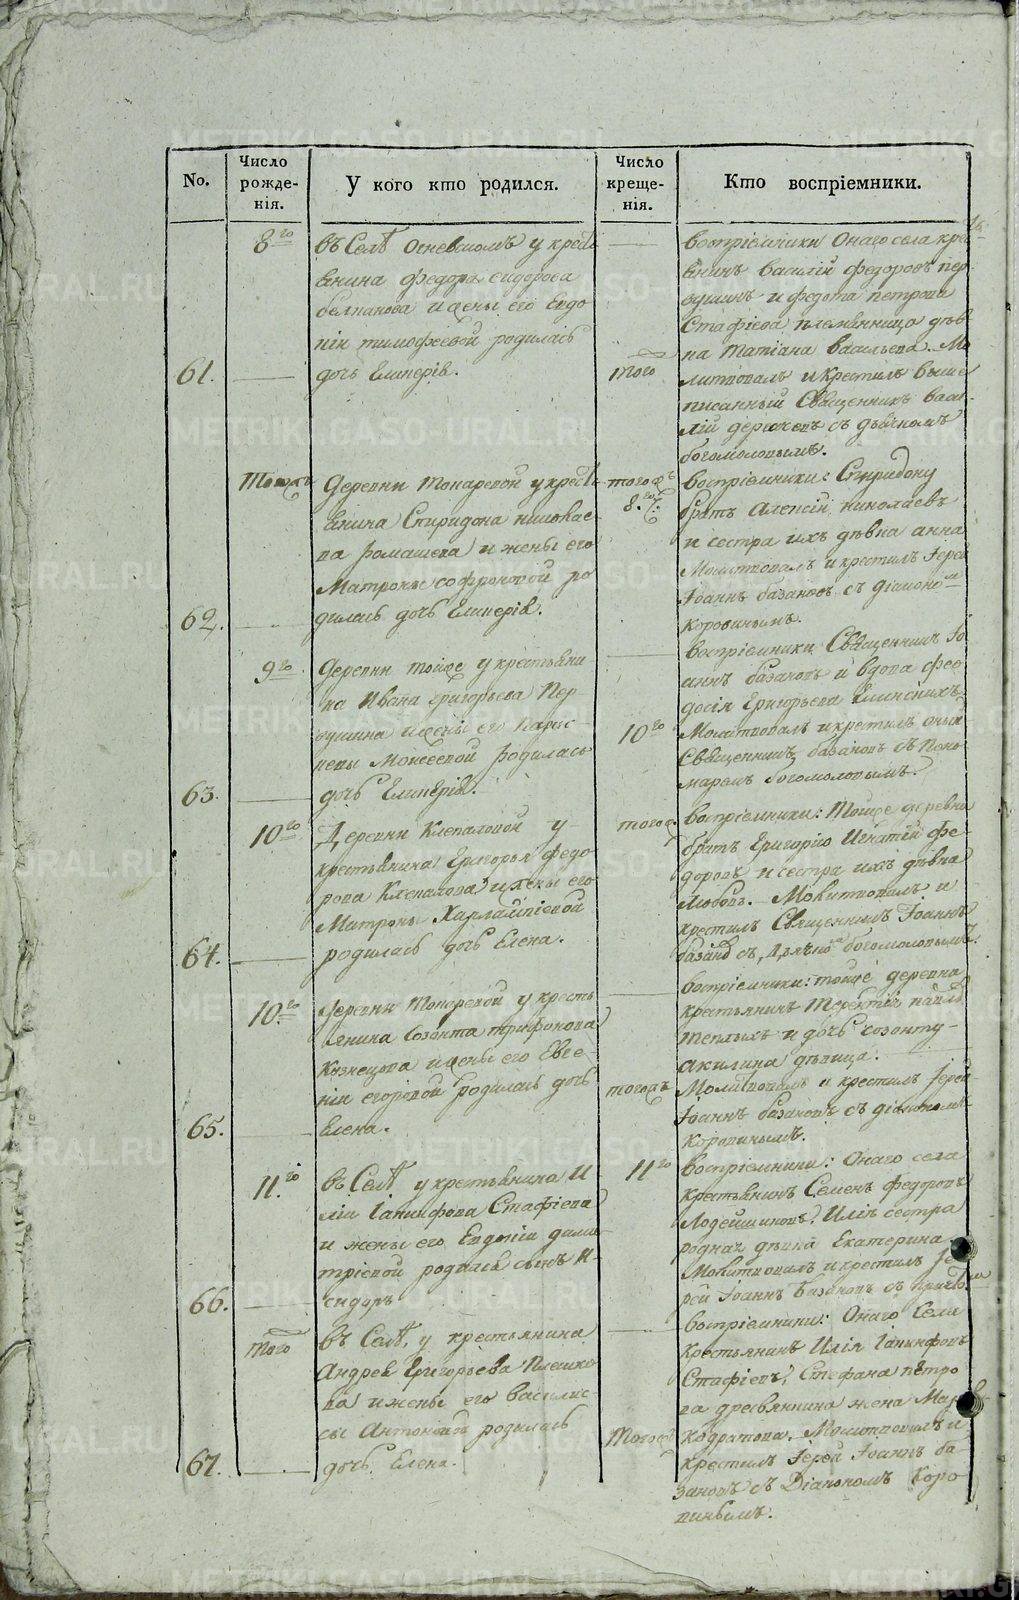 METRIKI.GASO-URAL.RU
No.
Число рожде-нія.
У кого кто родился.
Число креще-нія.
Кто воспріемники.
61.
8го
въ Селѣ Огневскомъ у кресть
янина Федора Сидорова
и жены его Евдо
кіи тимофеевой родилась
дочь Гликерія.
того
воспріемники Онаго села крес
янинъ василій Федоровъ пер
вушинъ и федота петрова
Стафіева племянница дѣв
ка Татіана васильева. Мо
литвовалъ и крестилъ выше
писанный Священникъ васи
лій съ дьячкомъ
богомоловымъ.
62.
Тогожъ
Деревни Токаревой у кресть
янина Спиридона николае
ва ромашева и жены его
Матроны софроновой ро
дилась дочь Гликерія.
тогожъ
8го
воспріемники: Спиридону
братъ Алексій николаевъ
и сестра ихъ дѣвка анна
Молитвовалъ и крестилъ Іерей
Іоаннъ базановъ съ діаконом
Коровинымъ.
63.
9го
Деревни тойже у крестьяни
на Ивана григорьева Пер
вушина и жены его
Моисеевой родилась
дочь Гликерія.
10го
воспріемники Священникъ Іо
аннъ базановъ и вдова Фео
досія Григорьева
Молитвовалъ и крестилъ оный
Священникъ базановъ съ Поно
маремъ богомоловымъ.
64.
10го
Деревни Клепаловой у
крестьянина Григорья федо
рова Клепалова и жены его
Матроны Харлампіевой
родилась дочь Елена.
тогож
воспріемники: Тойже деревни
братъ Григорію Игнатій Фе
доровъ и сестра ихъ дѣвка
Любовь. Молитвовалъ и
крестилъ Священникъ Іоаннъ
базановъ съ богомоловымъ.
65.
10го
Деревни Токаревой у кресть
янина Созонта трифонова
Кузнецова и жены его Евге
ніи егоровой родилась дочь
Елена.
тогожъ
воспріемники: тойже деревни
крестьянинъ Терентій
теплыхъ и дочь созонту
акилина дѣвица.
Молитвовалъ и крестилъ Іерей
Іоаннъ базановъ съ діакономъ
Коровинымъ.
66.
11го
въ Селѣ у крестьянина И
ліи Іакинфова Стафіева
и жены его Евдокіи дими
тріевой родился сынъ И
сидоръ
11го
воспріемники: Онаго села
крестьянинъ Семенъ федоровъ
Лодейщиковъ, Иліѣ сестра
родная дѣвка Екатерина
Молитвовалъ и крестилъ Іе
рей Іоаннъ Базановъ съ причтом
67.
того
въ Селѣ, у крестьянина
Андрея Григорьева Плешко
ва и жены его василис
сы Антоновой родилась
дочь Елена.
Тогож
воспріемники: Онаго Села
крестьянинъ Илія Іакинфовъ
Стафіевъ, Стефана петро
ва древянкина жена Марѳа
кодратова. Молитвовалъ и
крестилъ Іерей Іоаннъ ба
зановъ съ Діакономъ Коро
винымъ.